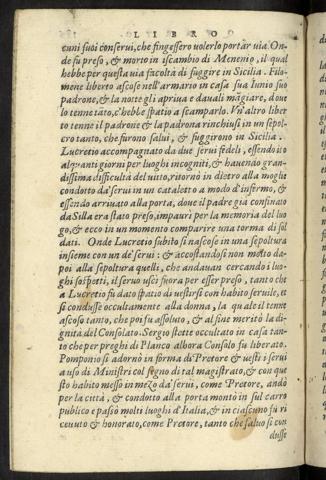 LIBRO
cuni suoi conserui, che fingessero uolerlo portar uia. On-
de fu preso, & morto in iscambio di Menenio, il qual
hebbe per questa uia facoltà di fuggire in Sicilia. Filo-
mene liberto ascose nell'armario in casa sua Iunio suo
padrone, & la notte gli apriua e dauali màgiare, dono
lo tenne tàto, c'hebbe spatio a scamparlo. Vn'altro liber
to tenne il padrone & la padrona rinchiusi in un sepol-
cro tanto, che furono salui, & fuggirono in Sicilia.
Lucretio accompagnato da due serui fedeli, essendo ito
alquanti giorni per luoghi incogniti, & hauendo gran-
dissima difficultà del uito, ritornò in dietro alla moglie
condotto da'serui in un cataletto a modo d'infermo, &
essendo arriuato alla porta, doue il padre già confinato
da Silla era stato preso, impaurì per la memoria del luo
go, & ecco in un momento comparire una torma di sol
dati. Onde Lucretio subito si nascose in una sepoltura
insieme con un de'serui: & accostandosi non molto da-
poi alla sepoltura quelli, che andauan cercando i luo-
ghi sospetti, il seruo uscì fuora per esser preso, tanto che
a Lucretio fu dato spatio di uestirsi con habito seruile, et
si condusse occultamente alla donna, la quale il tenne
ascoso tanto, che poi fu assoluto, & al fine meritò la di-
gnità del Consolato. Sergio stette occultato in casa tan-
to che per preghi di Planco alhora Consolo fu liberato.
Pomponio si adornò in forma di Pretore & uestì i serui
a uso di Ministri col segno di tal magistrato, & con que
sto habito messo in mezo da'serui, come Pretore, andò
per la città, & condotto alla porta montò in sul carro
publico e passò molti luoghi d'Italia, & in ciascuno fu ri
ceuuto & honorato, come Pretore, tanto che saluo si con
dusse